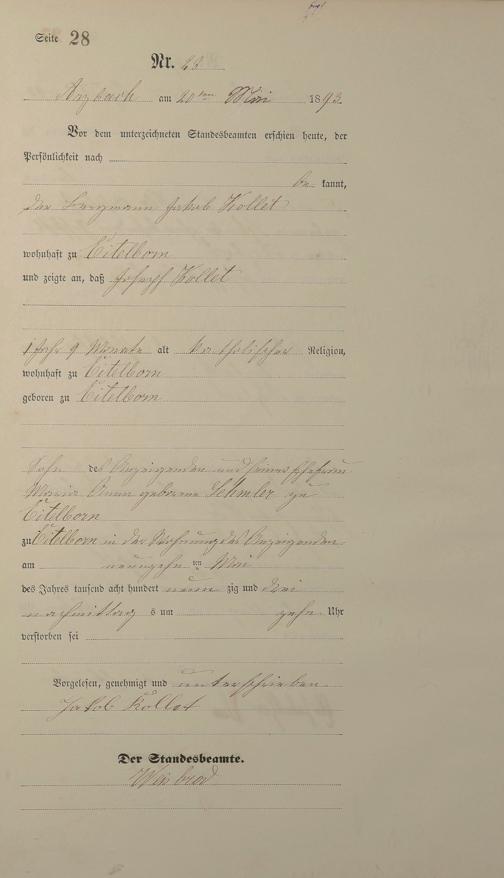 Seite 28
Nr. 28
Arzbach am 20ten Mai 1893.
Vor dem unterzeichneten Standesbeamten erschien heute, der
Persönlichkeit nach
be kannt,
der Bergmann Jakob Kollet
wohnhaft zu Eitelborn
und zeigte an, daß Joseph Kollet
1 Jahr 9 Monate alt katholischer Religion,
wohnhaft zu Eitelborn
geboren zu Eitelborn
Sohn des Anzeigenden und seiner Ehefrau
Maria Anna geborene zu
Eitelborn
zu Eitelborn in der Wohnung des Anzeigenden
am neunzehn ten Mai
des Jahres tausend acht hundert neun zig und drei
nachmittag s um zehn Uhr
verstorben sei
Vorgelesen, genehmigt und unterschrieben
Jakob Kollet
Der Standesbeamte.
Weisbrod